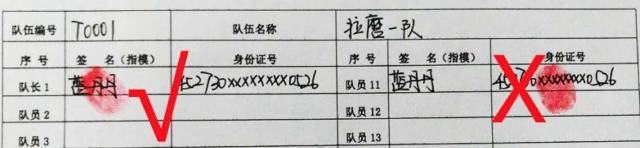 队伍编号 T0001 队伍名称 拉磨一队
序 号 签 名（指模） 身份证号 序 号 签 名（指模） 身份证号
队长1 蓝丹丹 452730xxxxxxxx0526 队员11 蓝丹丹 452730xxxxxxxx0526
队员2 队员12
队员3 队员13